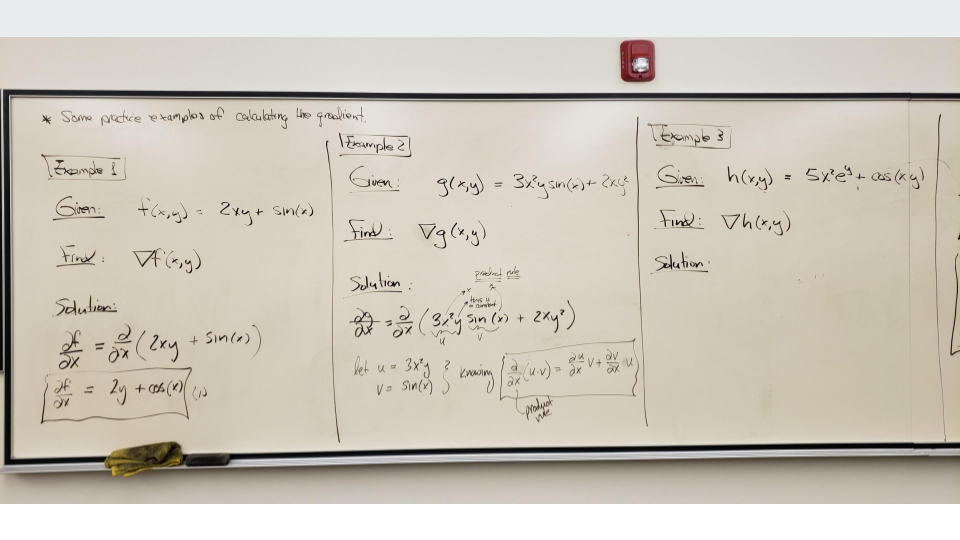 * Some practice examples of calculating the gradient.
Example 1
Given: f(x,y) = 2xy + sin(x)
Find: ∇f(x,y)
Solution:
∂f/∂x = ∂/∂x (2xy + sin(x))
∂f/∂x = 2y + cos(x) (1)
Example 2
Given: g(x,y) = 3x²y sin(x) + 2xy²
Find: ∇g(x,y)
Solution:
product rule
this is a constant
∂g/∂x = ∂/∂x (3x²y sin(x) + 2xy²)
u v
let u = 3x²y
v = sin(x) } knowing ∂/∂x (u·v) = ∂u/∂x v + ∂v/∂x u
product rule
Example 3
Given: h(x,y) = 5x²eʸ + cos(xy)
Find: ∇h(x,y)
Solution: